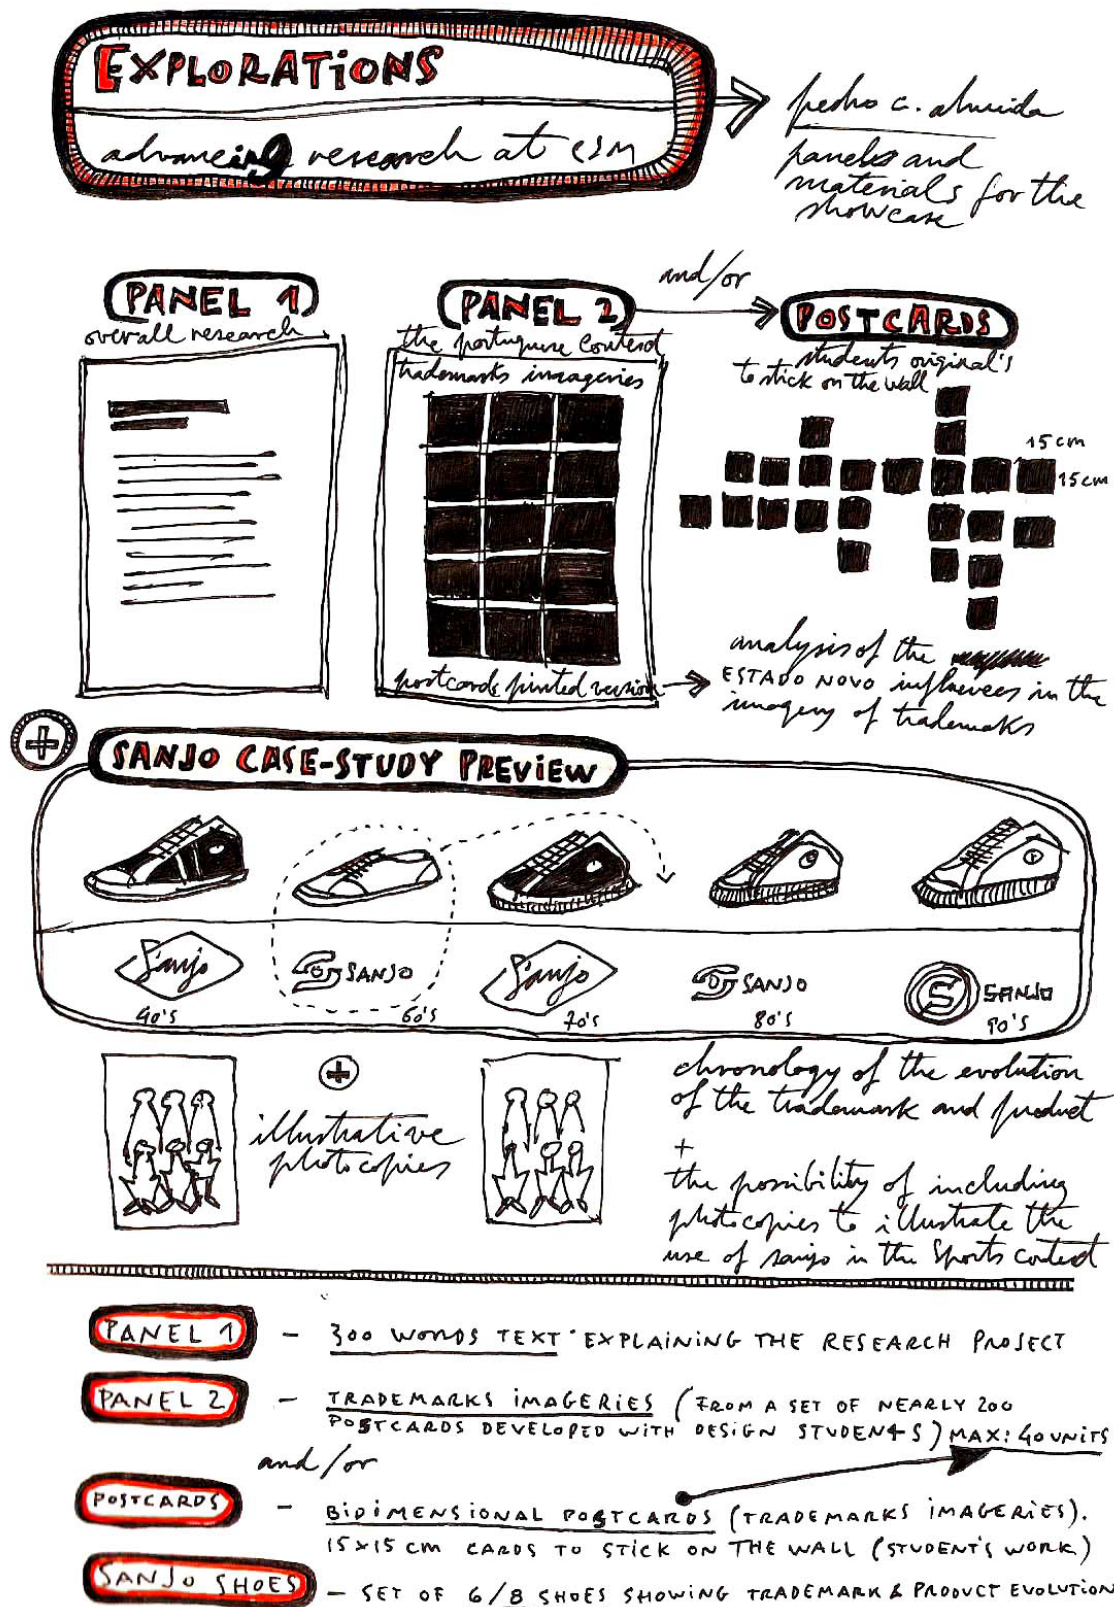 EXPLORATIONS
advancing research at CSM
pedro c. almeida
panels and
materials for the
showcase
PANEL 1
overall research
PANEL 2
the portuguese context
trademarks imageries
and/or
POSTCARDS
students original's
to stick on the wall
15 cm
15 cm
postcards printed version
analysis of the
ESTADO NOVO influences in the
imagery of trademaks
+
SANJO CASE-STUDY PREVIEW
Sanjo
SANJO
Sanjo
SANJO
S SANJO
40's
60's
70's
80's
90's
+
illustrative
photocopies
chronology of the evolution
of the trademark and product
+
the possibility of including
photocopies to illustrate the
use of sanjo in the Sports context
PANEL 1 - 300 WORDS TEXT EXPLAINING THE RESEARCH PROJECT
PANEL 2 - TRADEMARKS IMAGERIES (FROM A SET OF NEARLY 200
POSTCARDS DEVELOPED WITH DESIGN STUDENTS) MAX: 40 UNITS
and/or
POSTCARDS - BIDIMENSIONAL POSTCARDS (TRADEMARKS IMAGERIES).
15x15 CM CARDS TO STICK ON THE WALL (STUDENT'S WORK)
SANJO SHOES - SET OF 6/8 SHOES SHOWING TRADEMARK & PRODUCT EVOLUTION